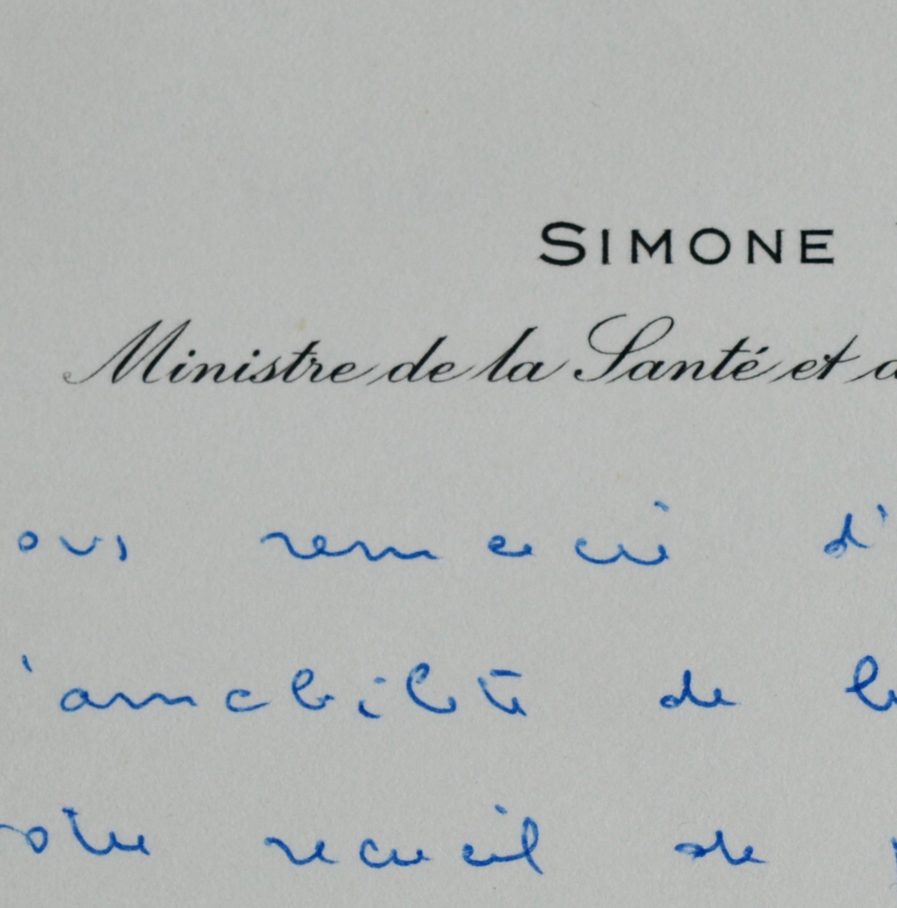 SIMONE
Ministre de la Santé et d
ous remercie d'
'amabilité de
otre recueil de